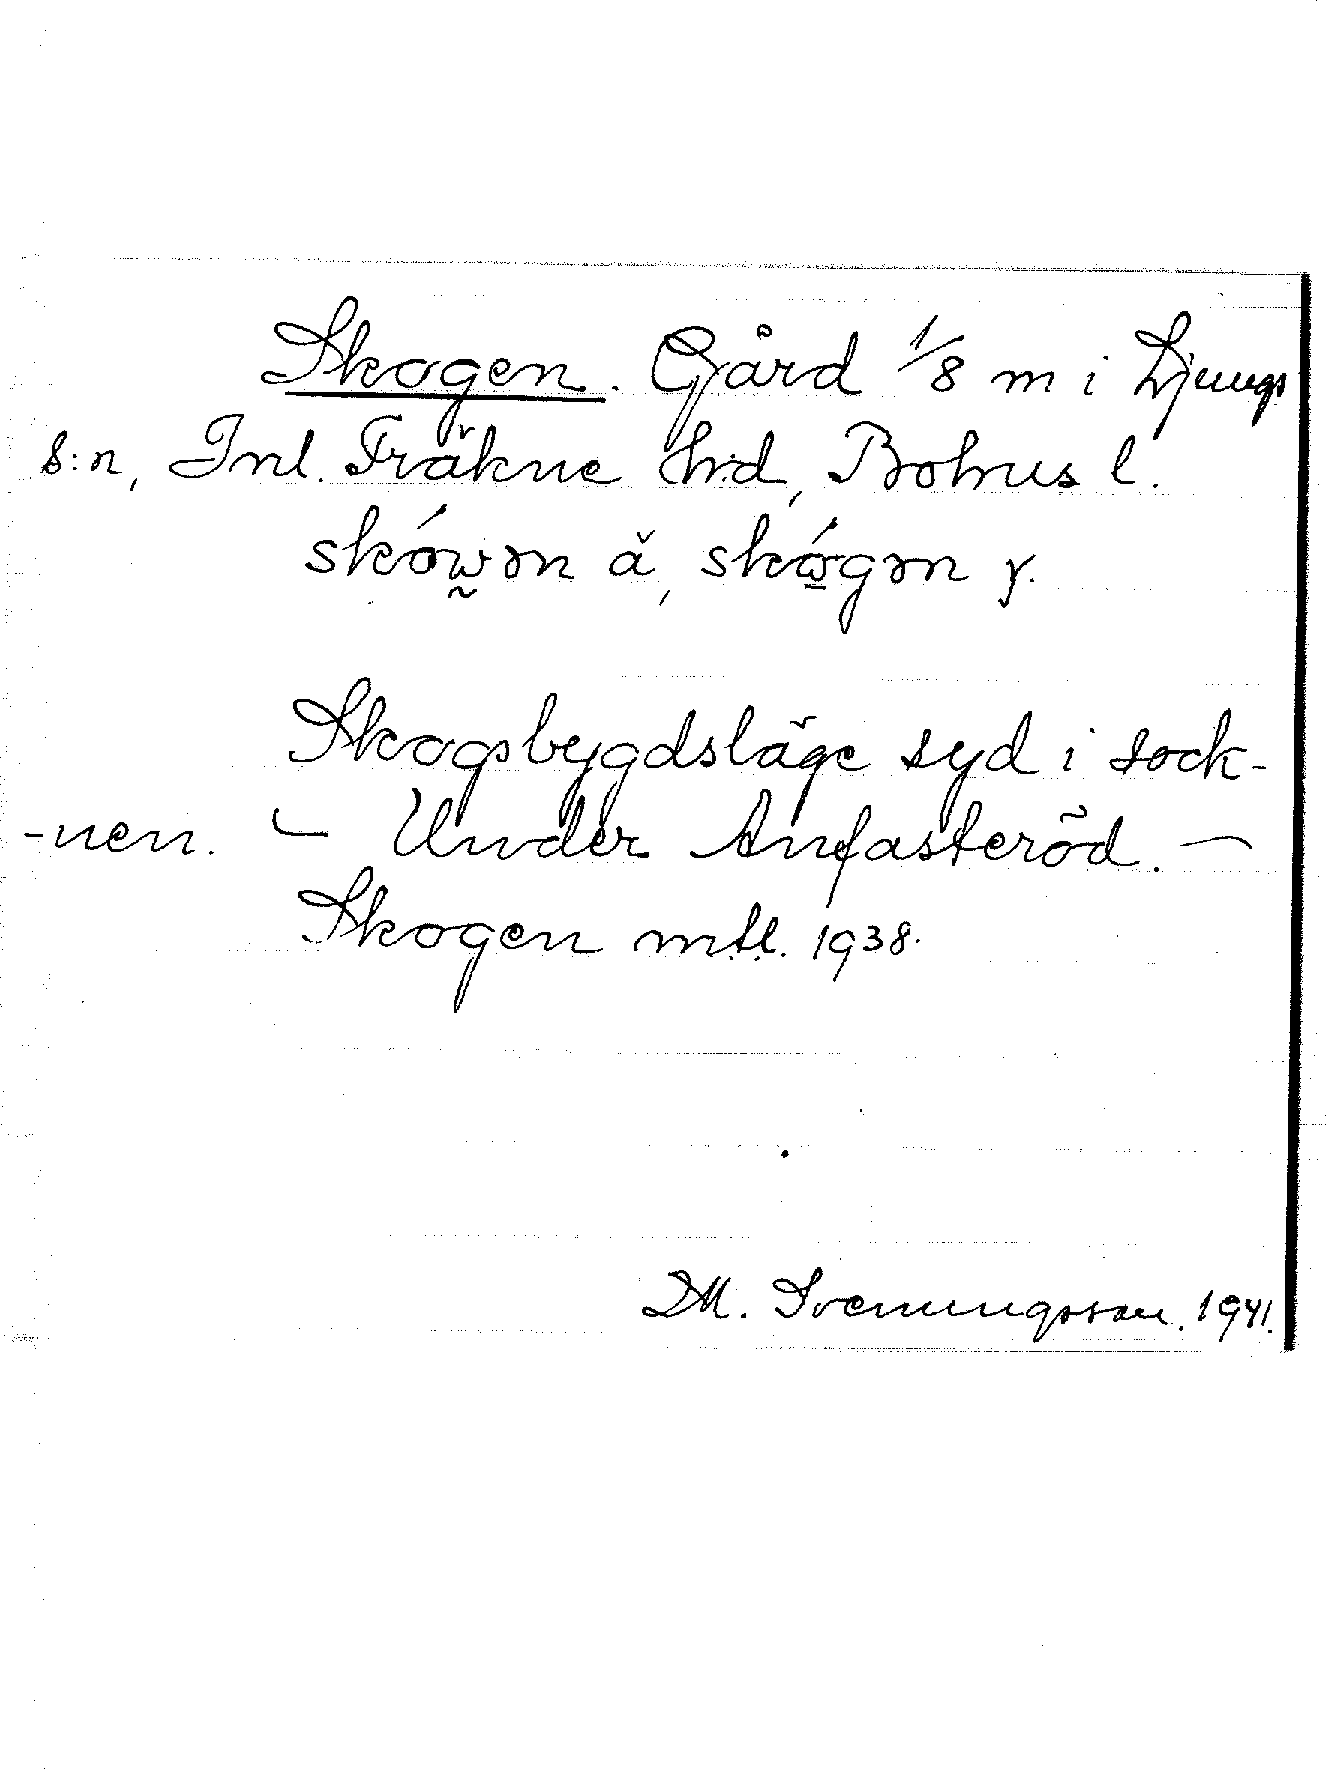 Skogen. Gård 1/8 m i Ljungs
s:n, Inl. Fräkne hd, Bohus l.
skówən ä, skógən y.
Skogsbygdsläge syd i sock-
-nen. — Under Anfasteröd. —
Skogen mtl. 1938.
M. Svenungsson. 1941.